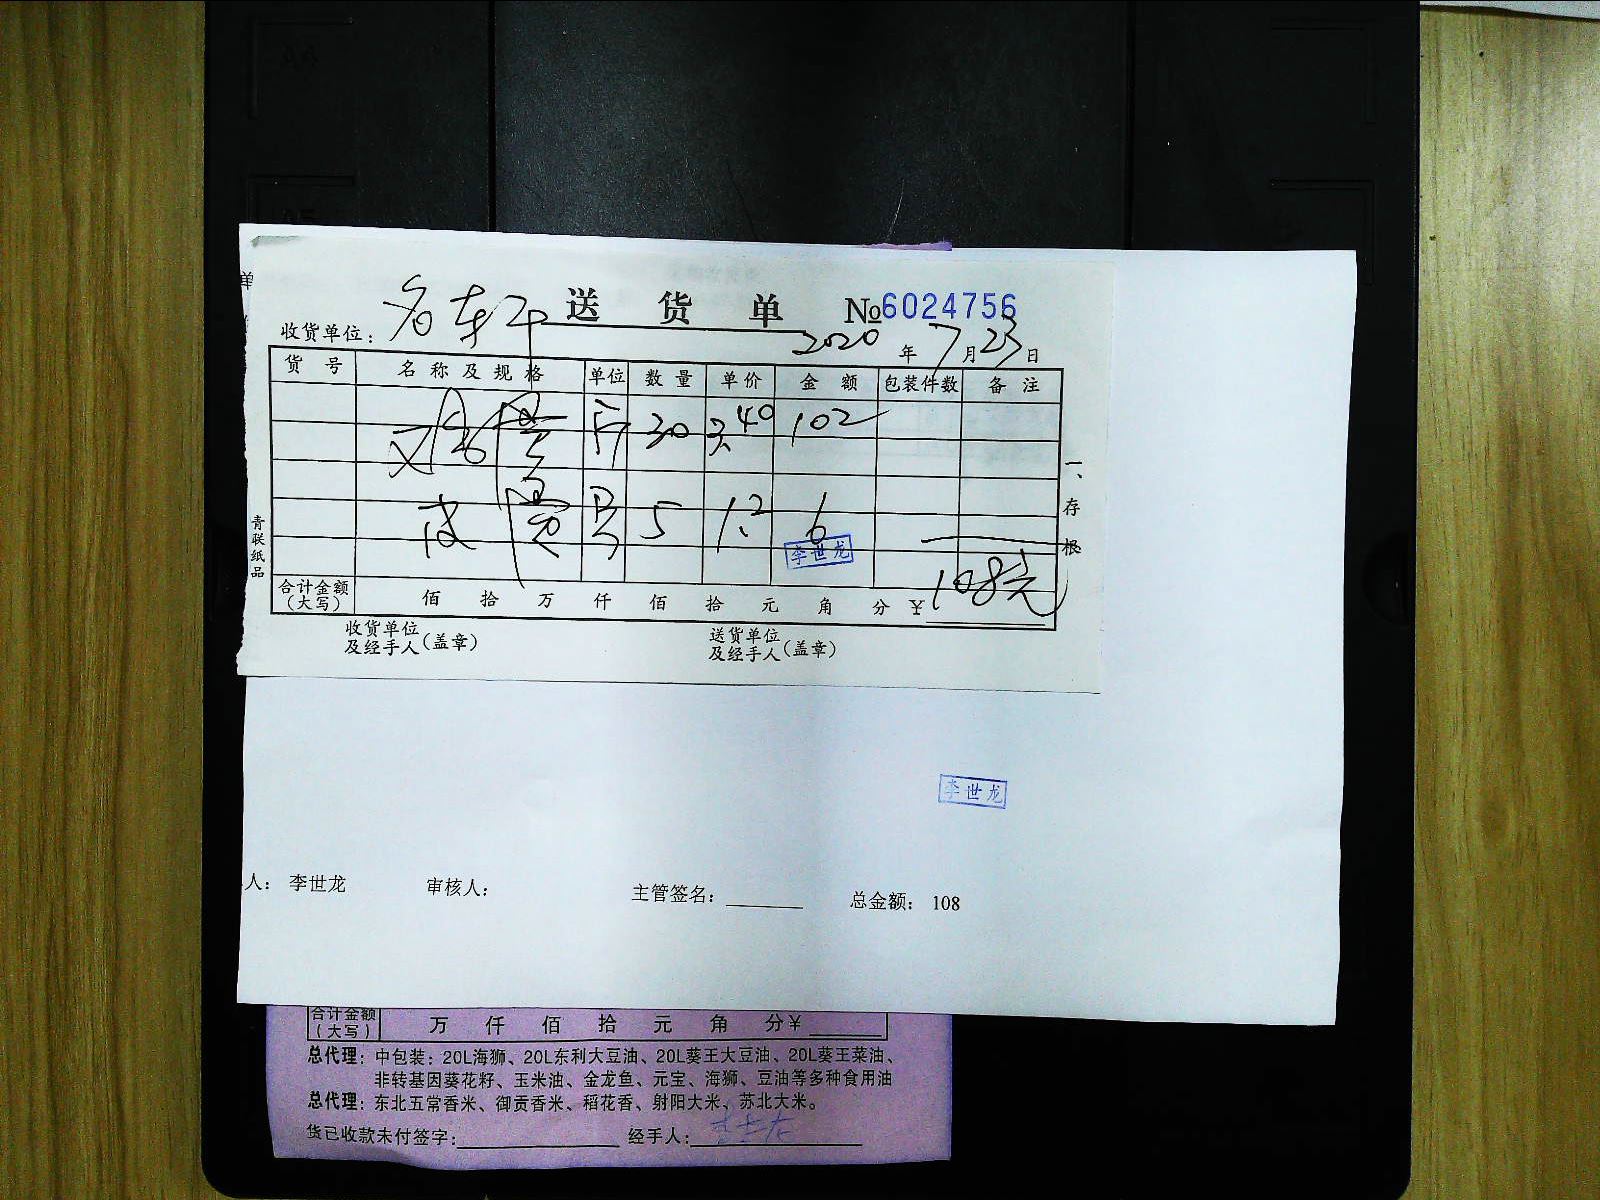 单
送货单 №6024756
收货单位：
2020年7月23日
货号 名称及规格 单位 数量 单价 金额 包装件数 备注
斤 30 3.40 102
5 1.2 6
李世龙
合计金额（大写） 佰 拾 万 仟 佰 拾 元 角 分 ￥108元
收货单位及经手人（盖章） 送货单位及经手人（盖章）
一、存根
青联纸品
李世龙
人： 李世龙 审核人： 主管签名： 总金额： 108
合计金额（大写） 万 仟 佰 拾 元 角 分￥
总代理：中包装：20L海狮、20L东利大豆油、20L葵王大豆油、20L葵王菜油、
非转基因葵花籽、玉米油、金龙鱼、元宝、海狮、豆油等多种食用油
总代理：东北五常香米、御贡香米、稻花香、射阳大米、苏北大米。
货已收款未付签字： 经手人：